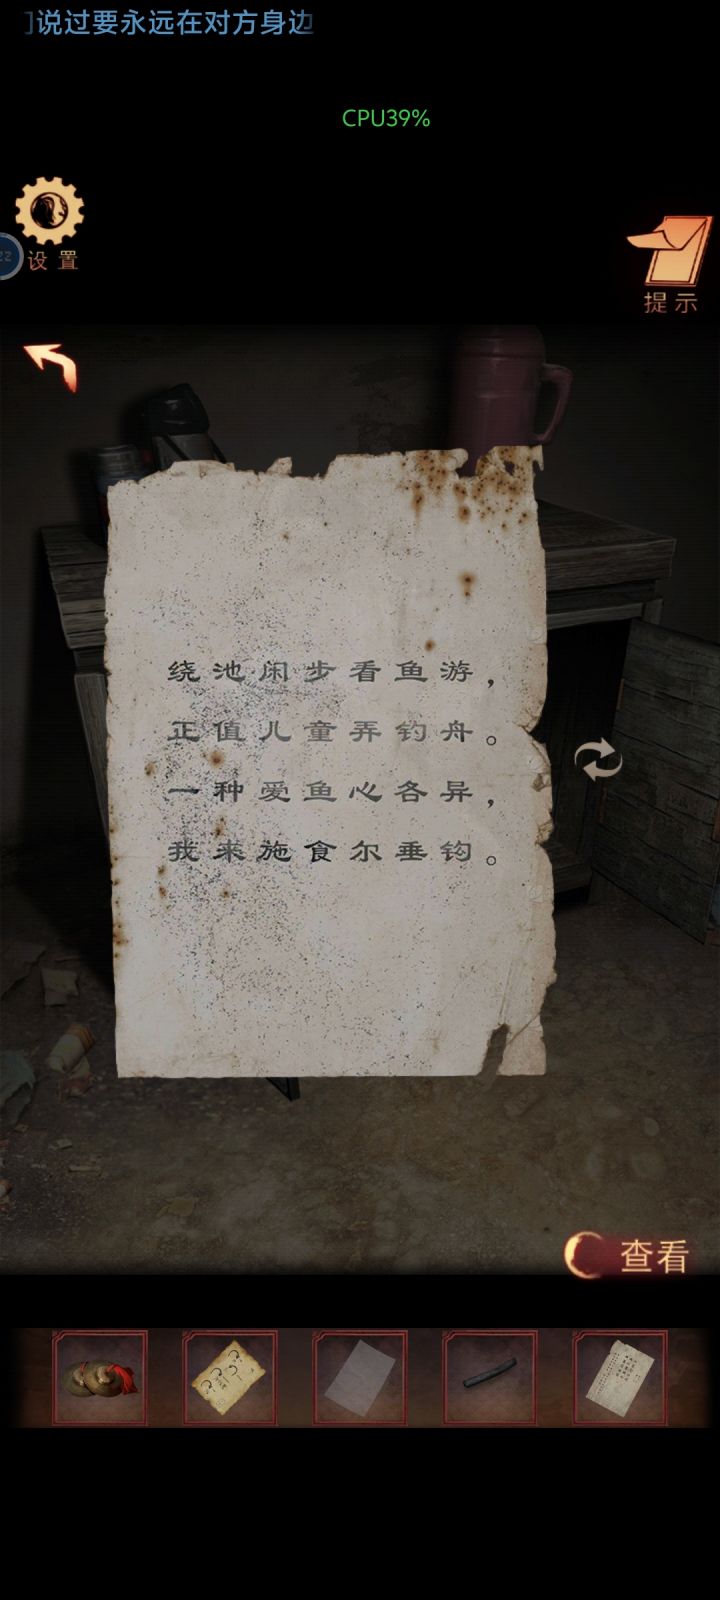 说过要永远在对方身边
CPU39%
设置
22
提示
绕池闲步看鱼游，
正值儿童弄钓舟。
一种爱鱼心各异，
我来施食尔垂钩。
查看